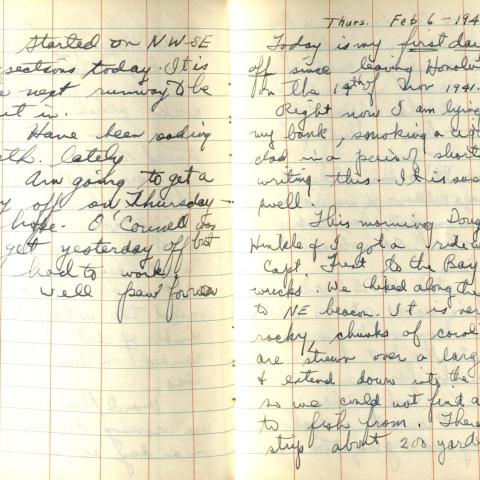 Started on NW-SE
sections today. It is
next runway to be
it in.
Have been reading
lately
Am going to get a
off on Thursday -
hope. O'Connell was
get yesterday off but
had to work!
Well
Thurs. Feb 6 - 194
Today is my first day
off since leaving Honolu
on the 19th of Nov 1941.
Right now I am lying
my bunk, smoking a cig
clad in a pair of shorts
writing this. It is
swell.
This morning Doug
Hinkle & I got a ride w
Capt. to the Bay
wrecks. We hiked along the
to NE beacon. It is ver
rocky, chunks of coral
are strewn over a larg
& extend down into the
so we could not find a
to fish from. There
strip about 200 yard